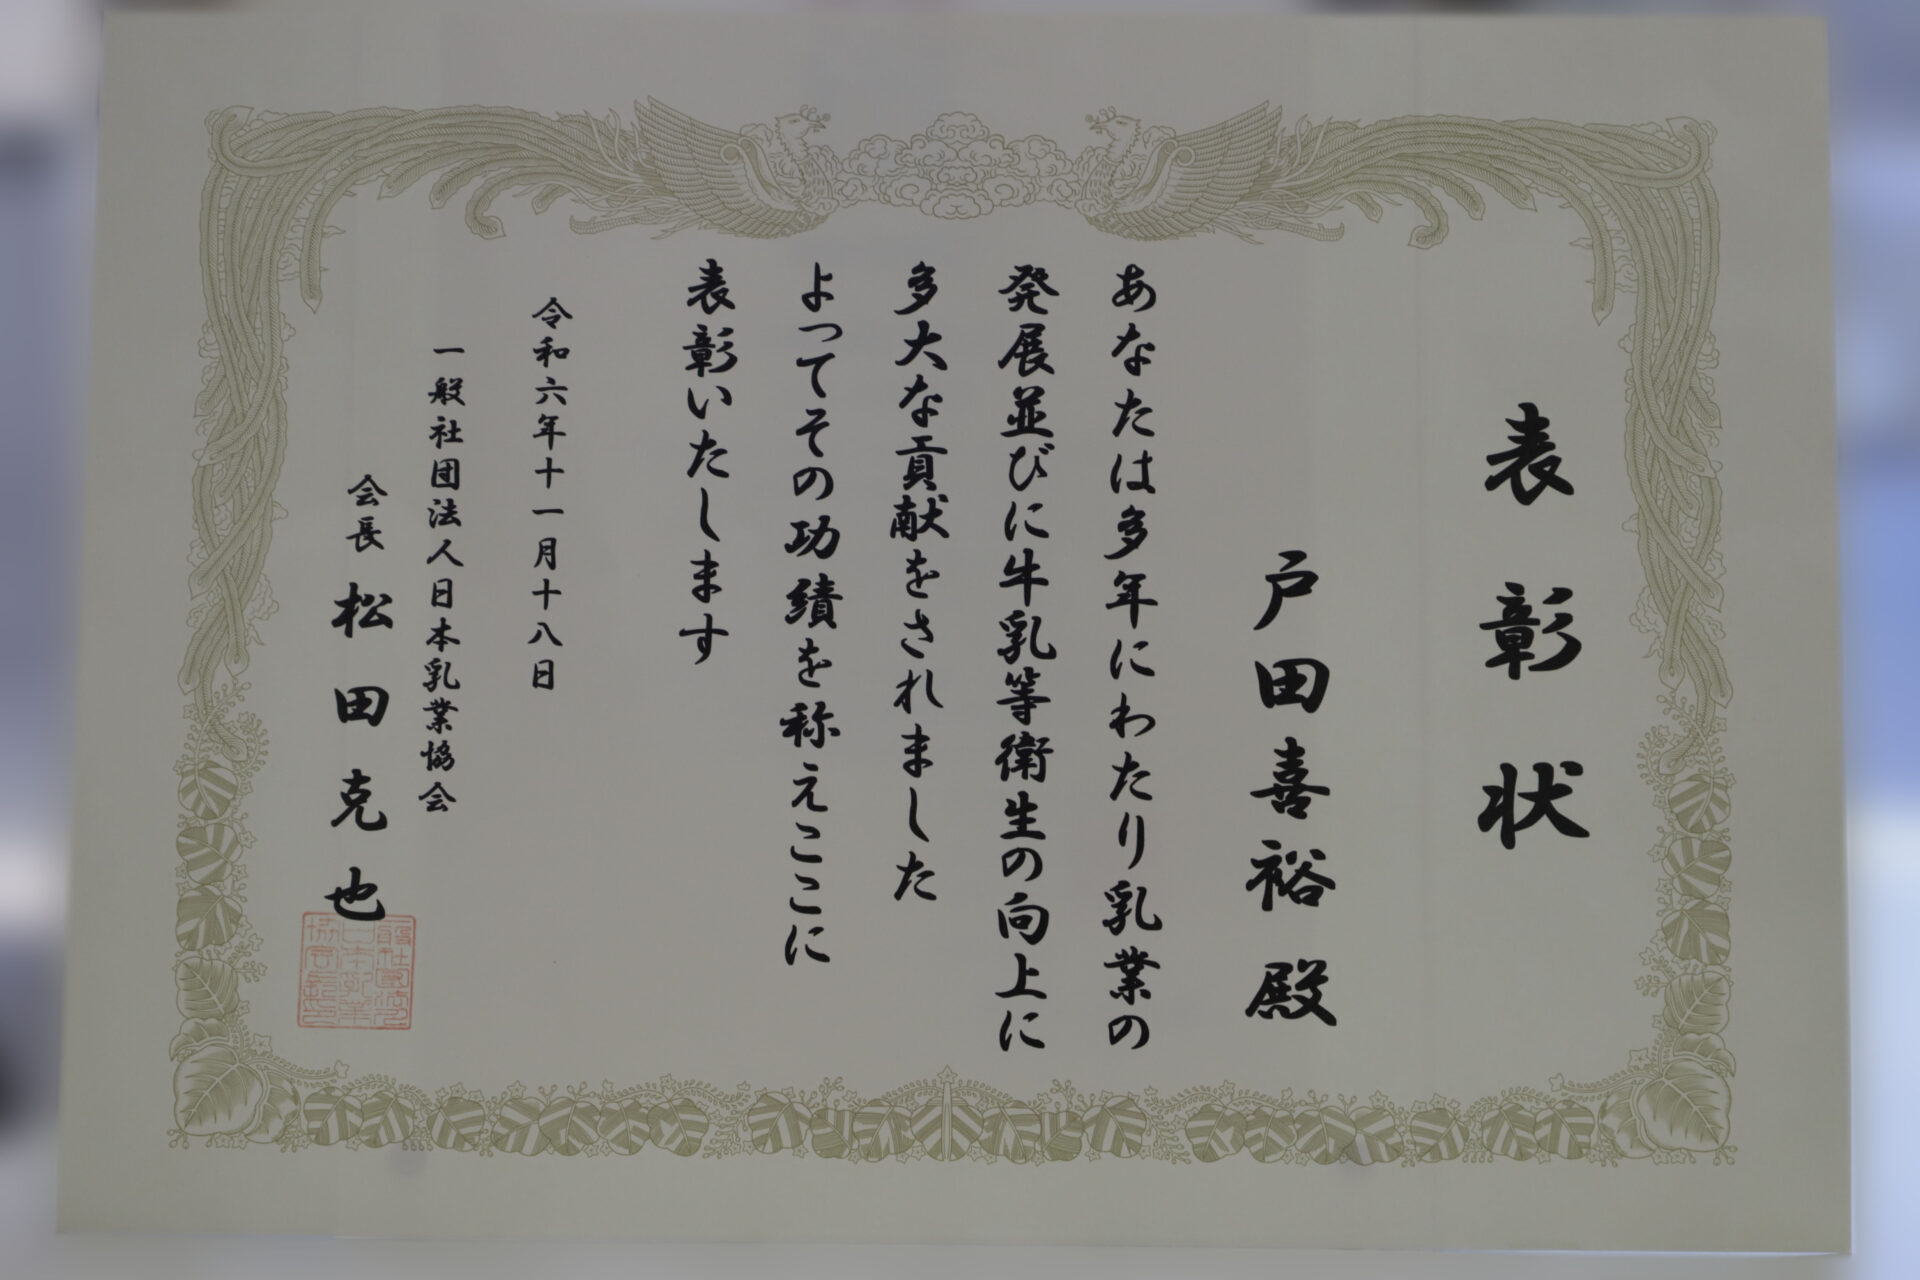 表彰状
戸田喜裕殿
あなたは多年にわたり乳業の
発展並びに牛乳等衛生の向上に
多大な貢献をされました
よってその功績を称えここに
表彰いたします
令和六年十一月十八日
一般社団法人日本乳業協会
会長 松田克也